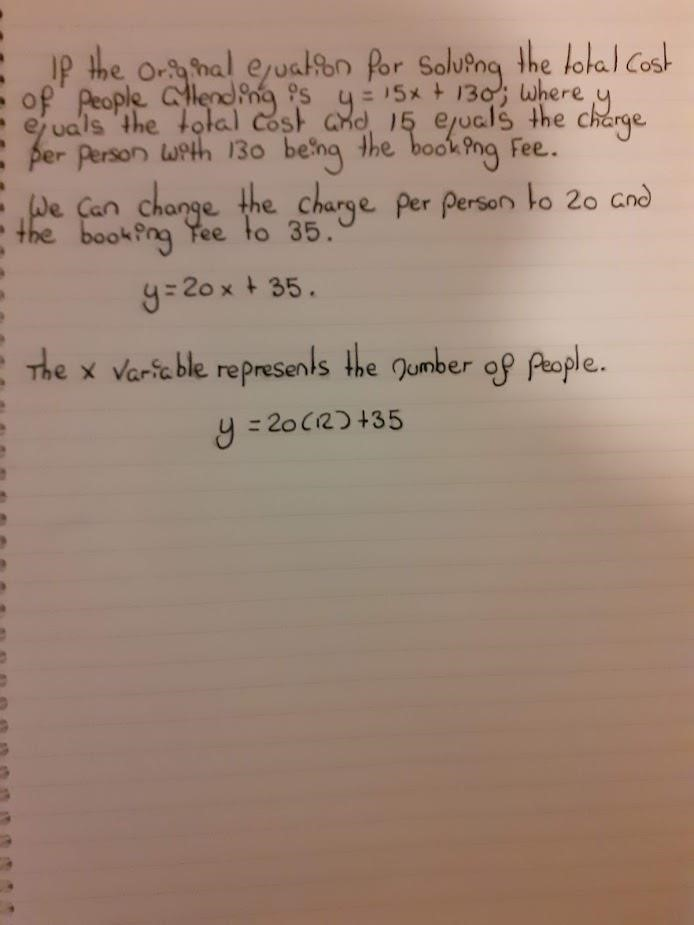 If the original equation for solving the total cost
of people attending is y = 15x + 130; where y
equals the total cost and 15 equals the charge
per person with 130 being the booking fee.
We can change the charge per person to 20 and
the booking fee to 35.
y = 20x + 35.
The x variable represents the number of people.
y = 20(12) + 35